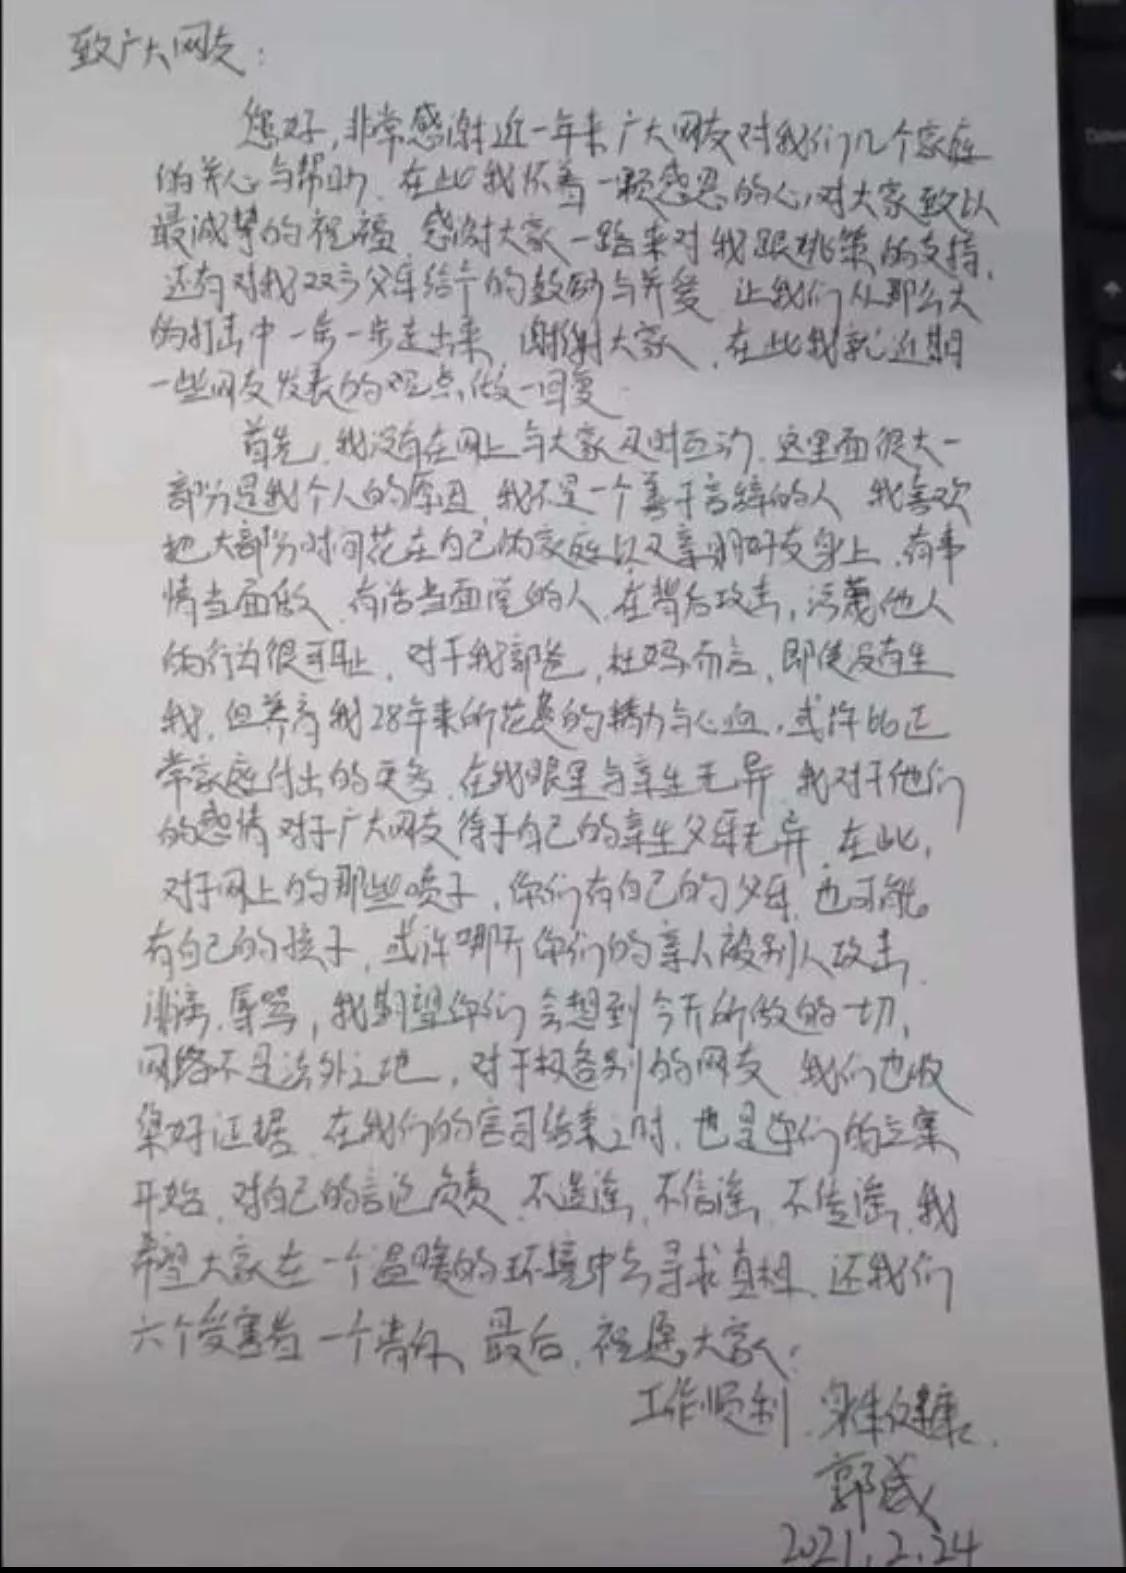 致广大网友：
您好，非常感谢近一年来广大网友对我们几个家庭
的关心与帮助，在此我怀着一颗感恩的心，对大家致以
最诚挚的祝福，感谢大家一路来对我跟姚策的支持，
还有对我双方父母给予的鼓励与关爱，让我们从那么大
的打击中一步一步走出来，谢谢大家，在此我就近期
一些网友发表的观点做一回复.
首先，我没有在网上与大家及时互动，这里面很大一
部分是我个人的原因，我不是一个善于言辞的人，我喜欢
把大部分时间花在自己的家庭以及亲朋好友身上，有事
情当面做，有话当面说的人，在背后攻击，污蔑他人
的行为很可耻，对于我郭爸，杜妈而言，即使没有生
我，但养育我28年来所花费的精力与心血，或许比正
常家庭付出的更多，在我眼里与亲生无异，我对于他们
的感情对于广大网友待于自己的亲生父母无异，在此，
对于网上的那些喷子，你们有自己的父母，也可能
有自己的孩子，或许哪天你们的亲人被别人攻击，
诽谤，辱骂，我期望你们会想到今天所做的一切，
网络不是法外之地，对于极各别的网友，我们也收
集好证据，在我们的官司结束之时，也是你们的立案
开始，对自己的言论负责，不造谣，不信谣，不传谣，我
希望大家在一个温暖的环境中去寻求真相，还我们
六个受害者一个清白，最后，祝愿大家：
工作顺利，身体健康.
郭威
2021.2.24
Down